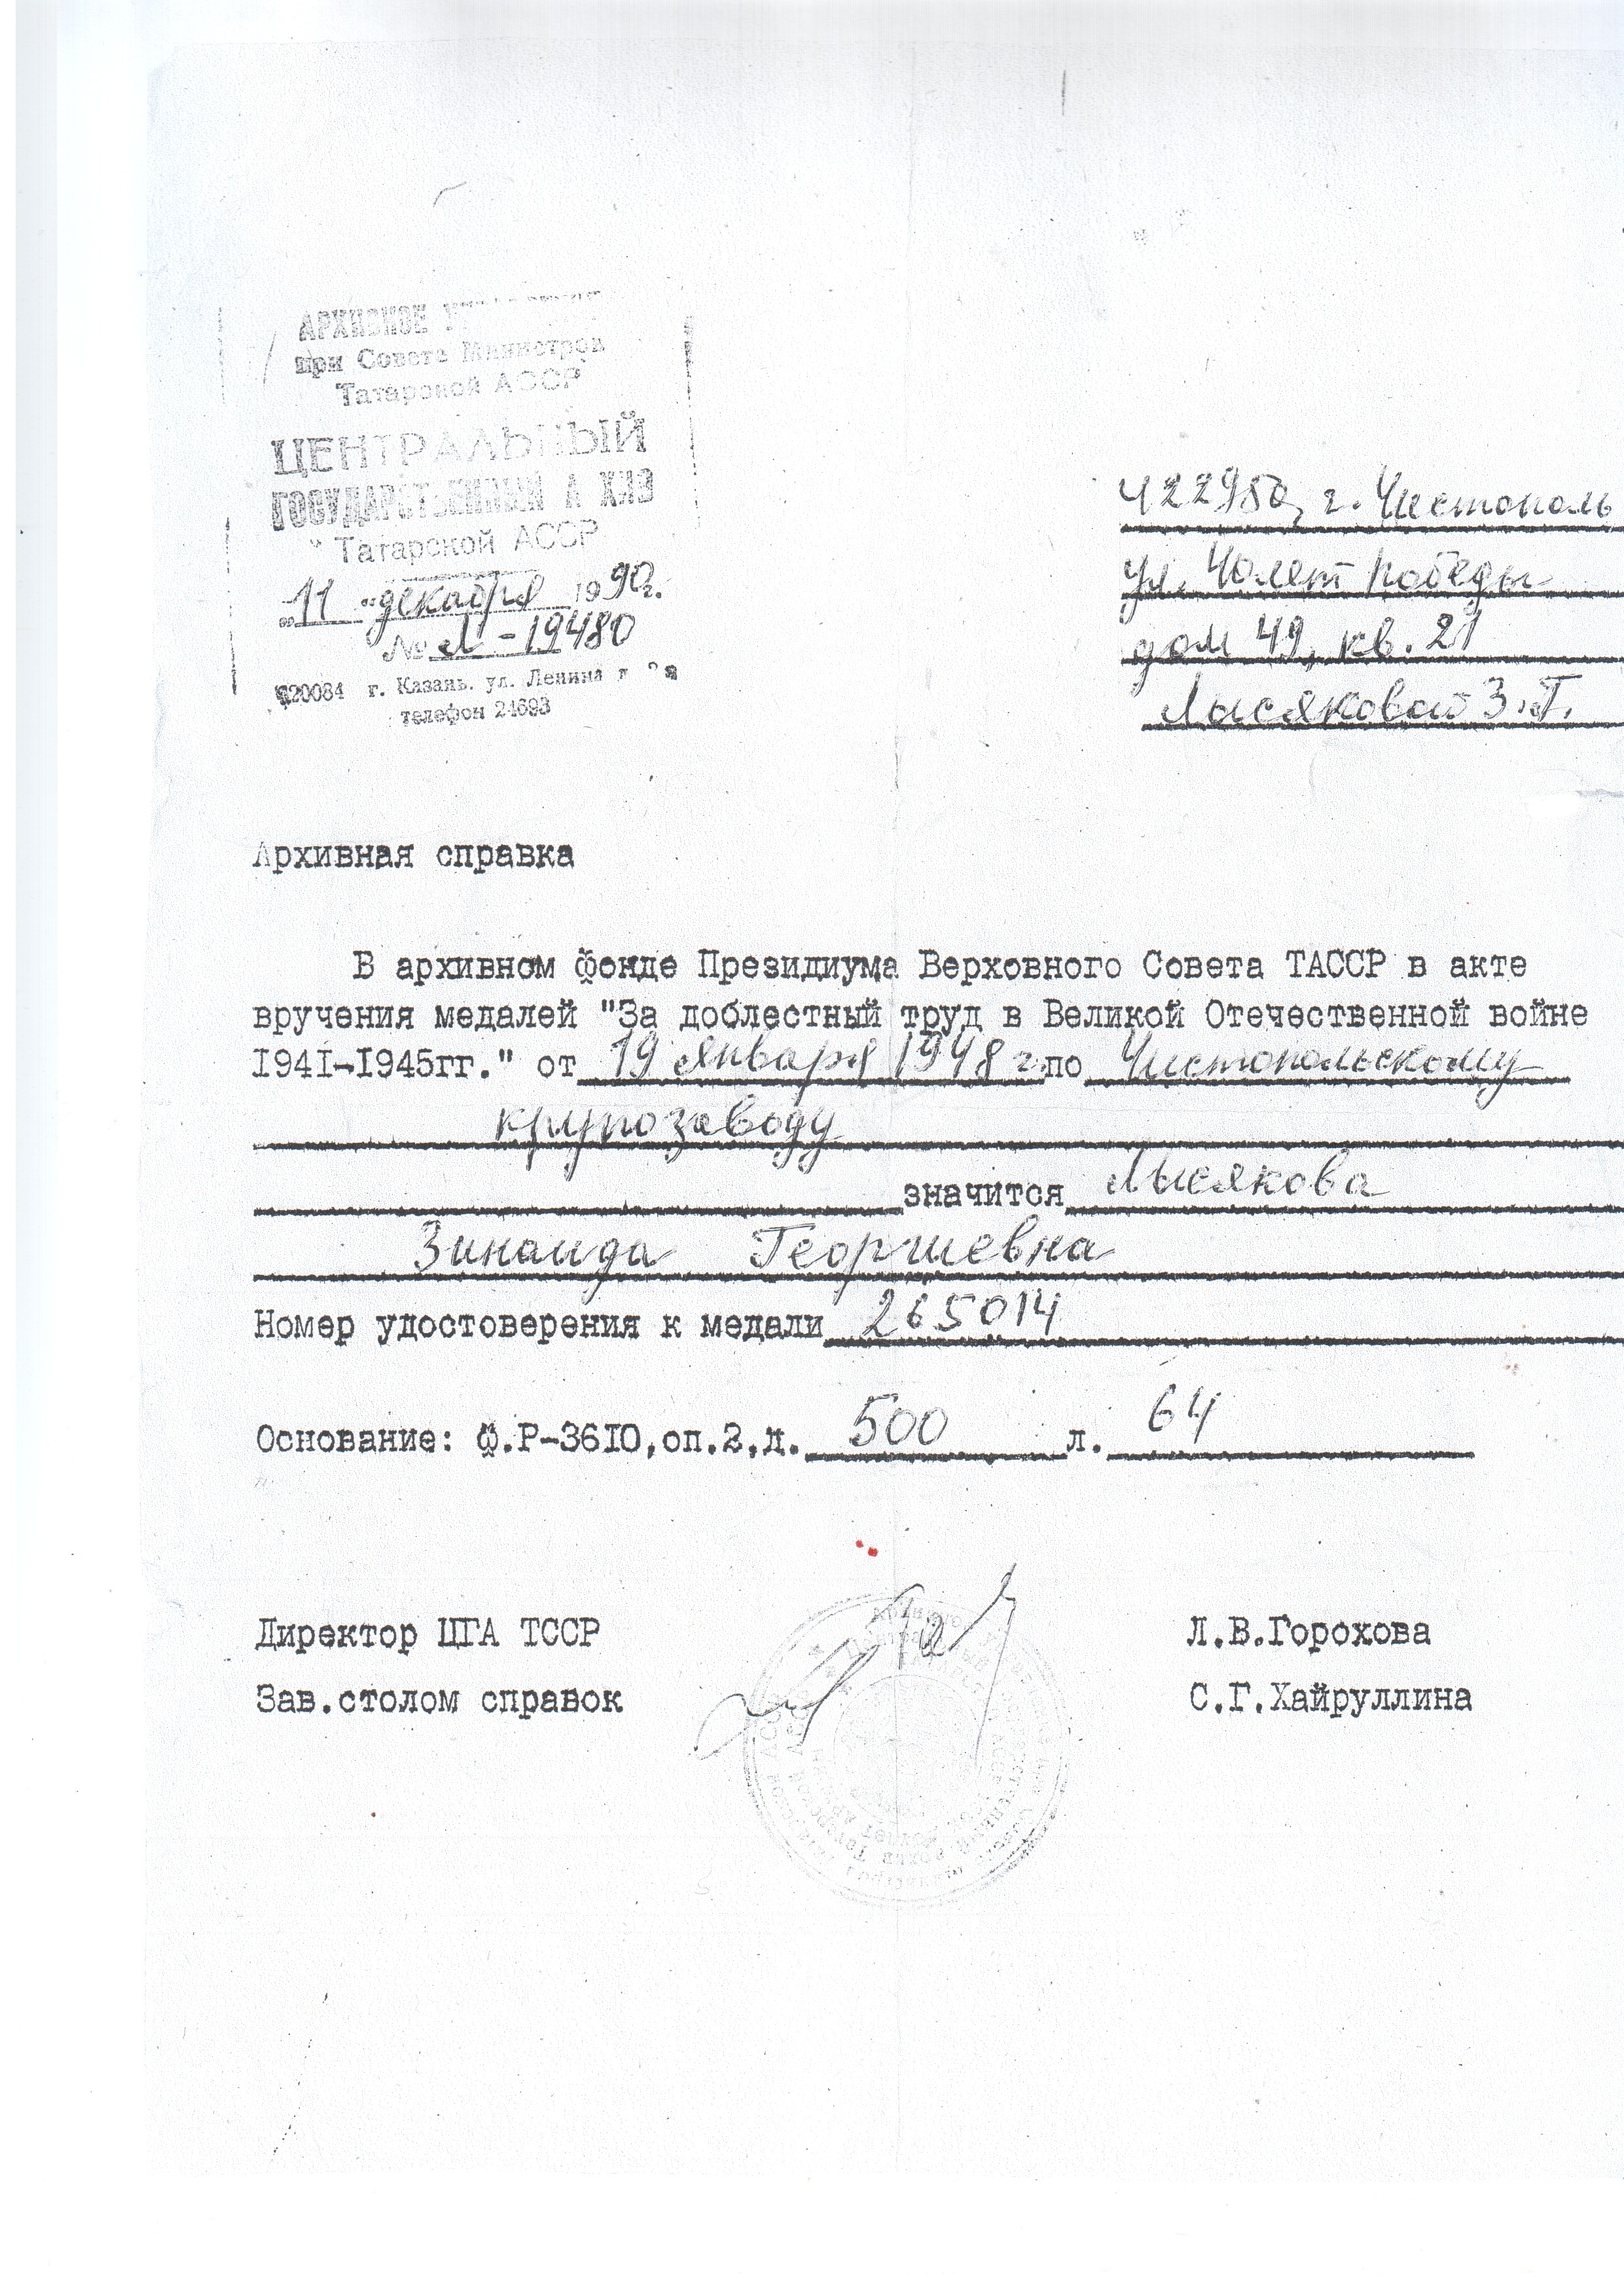 АРХИВНОЕ
при Совете Министров
Татарской АССР
ЦЕНТРАЛЬНЫЙ
ГОСУДАРСТВЕННЫЙ А ХИВ
Татарской АССР
„11 “ декабря 1990г.
№ Л-19480
420084 г. Казань. ул. Ленина
телефон 24693
422950, г. Чистополь
ул. 40 лет Победы
дом 49, кв. 21
Лысяковой З.Г.
Архивная справка
В архивном фонде Президиума Верховного Совета ТАССР в акте
вручения медалей "За доблестный труд в Великой Отечественной войне
1941-1945гг." от 19 января 1948 г. по Чистопольскому
крупозаводу
значится Лысякова
Зинаида Георгиевна
Номер удостоверения к медали 265014
Основание: Ф.Р-3610,оп.2,д. 500 л. 64
Директор ЦГА ТССР Л.В.Горохова
Зав.столом справок С.Г.Хайруллина